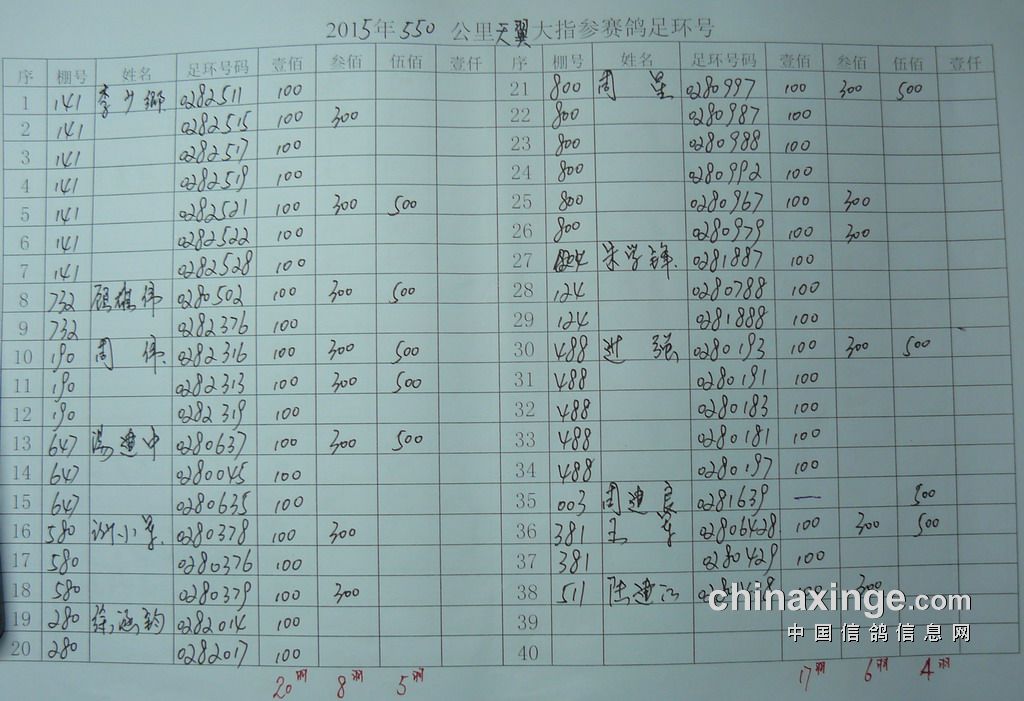 2015年550公里天翼大指参赛鸽足环号
序 棚号 姓名 足环号码 壹佰 叁佰 伍佰 壹仟 序 棚号 姓名 足环号码 壹佰 叁佰 伍佰 壹仟
1 141 李少卿 0282511 100 21 800 周星 0280997 100 300 500
2 141 0282515 100 300 22 800 0280987 100
3 141 0282517 100 23 800 0280988 100
4 141 0282519 100 24 800 0280992 100
5 141 0282521 100 300 500 25 800 0280967 100 300
6 141 0282522 100 26 800 0280979 100 300
7 141 0282528 100 27 宋学锋 0281887 100
8 732 顾雄伟 0280502 100 300 500 28 124 0280788 100
9 732 0282376 100 29 124 0281888 100
10 190 周伟 0282316 100 300 500 30 488 进强 0280193 100 300 500
11 190 0282313 100 300 500 31 488 0280191 100
12 190 0282319 100 32 488 0280183 100
13 647 汤建中 0280637 100 300 500 33 488 0280181 100
14 647 0280045 100 34 488 0280187 100
15 647 0280635 100 35 003 周迪良 0281639 — 500
16 580 谢小华 0280378 100 300 36 381 王 02806428 100 300 500
17 580 0280376 100 37 381 0280429 100
18 580 0280379 100 300 38 511 陆建江 300
19 280 徐涵钧 0282014 100 39
20 280 0282017 100 40
20羽 8羽 5羽 17羽 6羽 4羽
chinaxinge.com
中国信鸽信息网